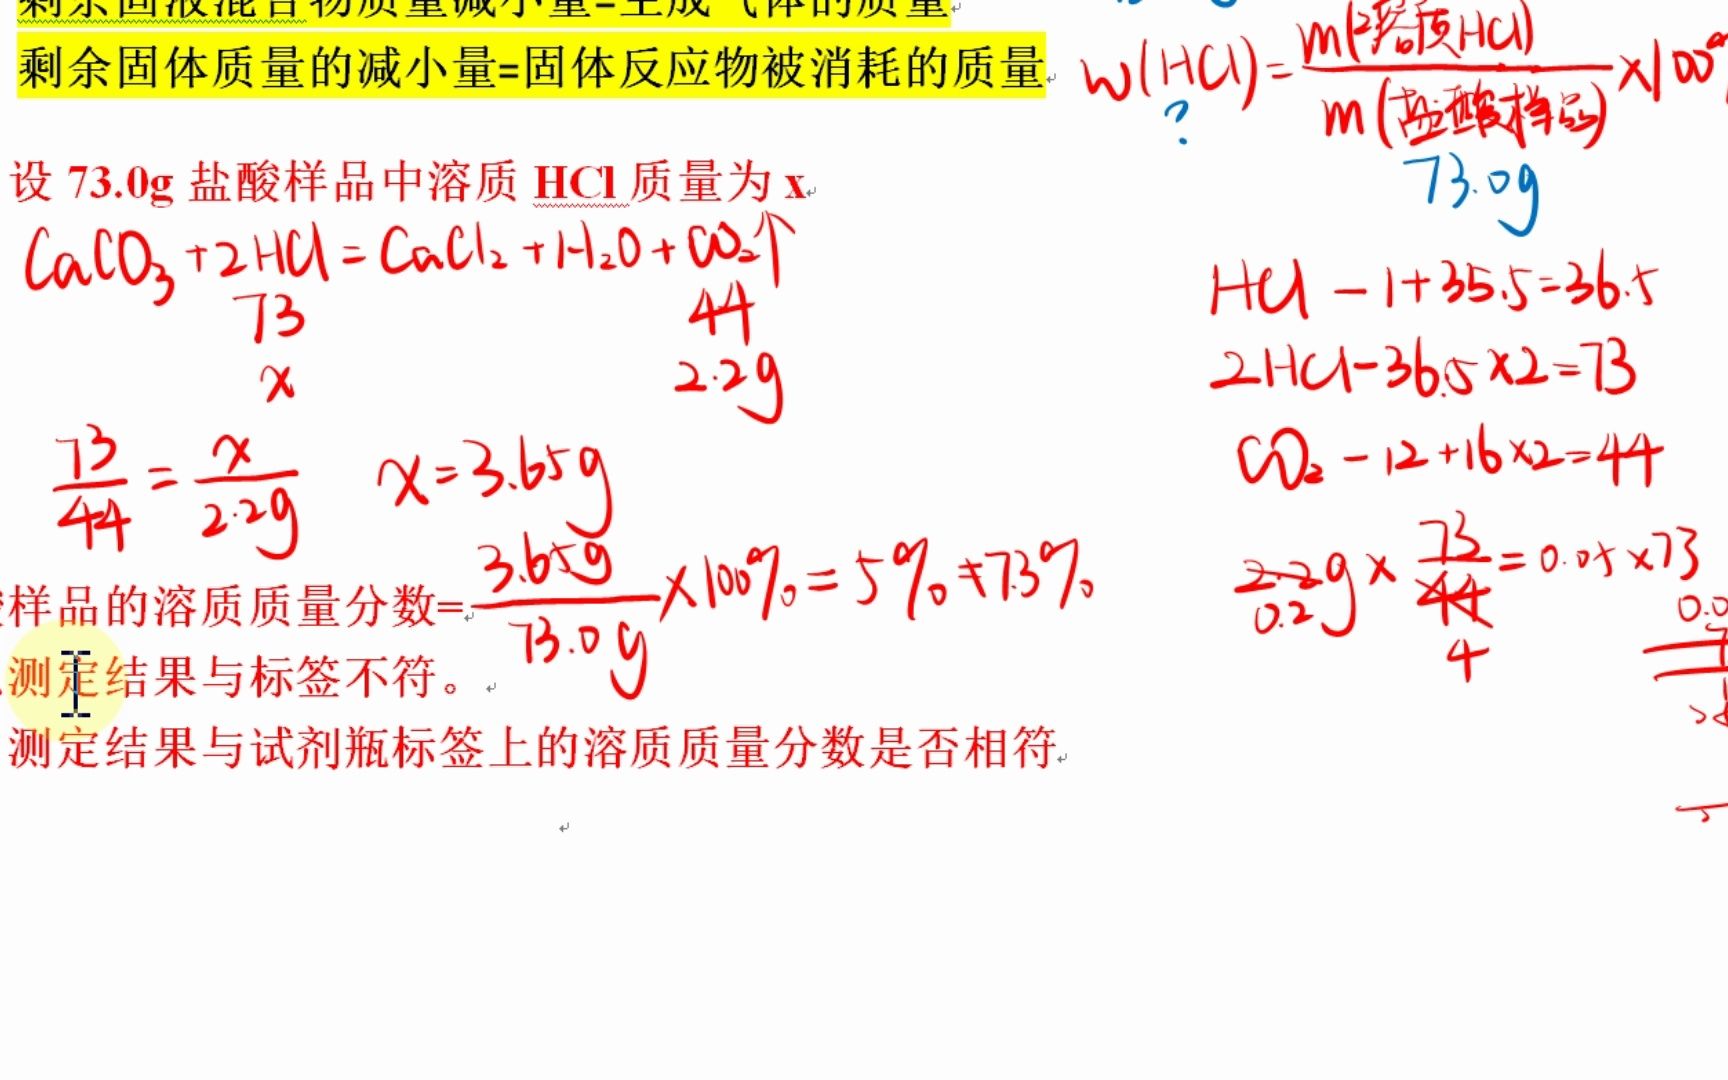 剩余固液混合物质量减小量=生成气体的质量
剩余固体质量的减小量=固体反应物被消耗的质量
w(HCl)=m(溶质HCl)/m(盐酸样品)×100%
?
73.0g
设 73.0g 盐酸样品中溶质 HCl 质量为 x
CaCO₃+2HCl=CaCl₂+H₂O+CO₂↑
73 44
x 2.2g
73/44=x/2.2g x=3.65g
样品的溶质质量分数=3.65g/73.0g×100%=5%≠7.3%
测定结果与标签不符。
测定结果与试剂瓶标签上的溶质质量分数是否相符
HCl-1+35.5=36.5
2HCl-36.5×2=73
CO₂-12+16×2=44
2.2g×73/44=0.05×73
0.2 4